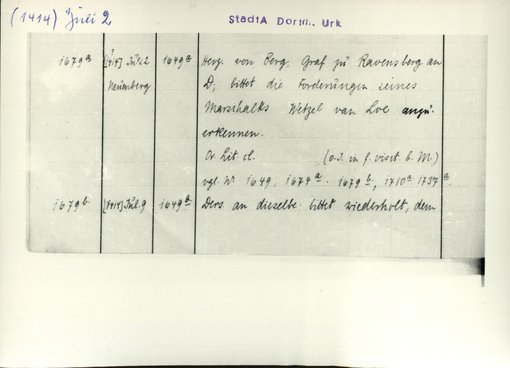 (1414) Juli 2
StadtA Dortm. Urk
1679a [1414] Juli 2 1649a Herz. von Berg, Graf zu Ravensberg an
Neuenberg D, bittet die Forderungen seines
Marschalks Wetzel van Loe anzu-
erkennen.
Or Lit. cl. (o.J. in f. visit. b. M.)
vgl. Nr 1649, 1674a. 1679b, 1710a 1737a.
1679b [1414] Jul. 9 1649b Ders an dieselbe: bittet wiederholt, dem